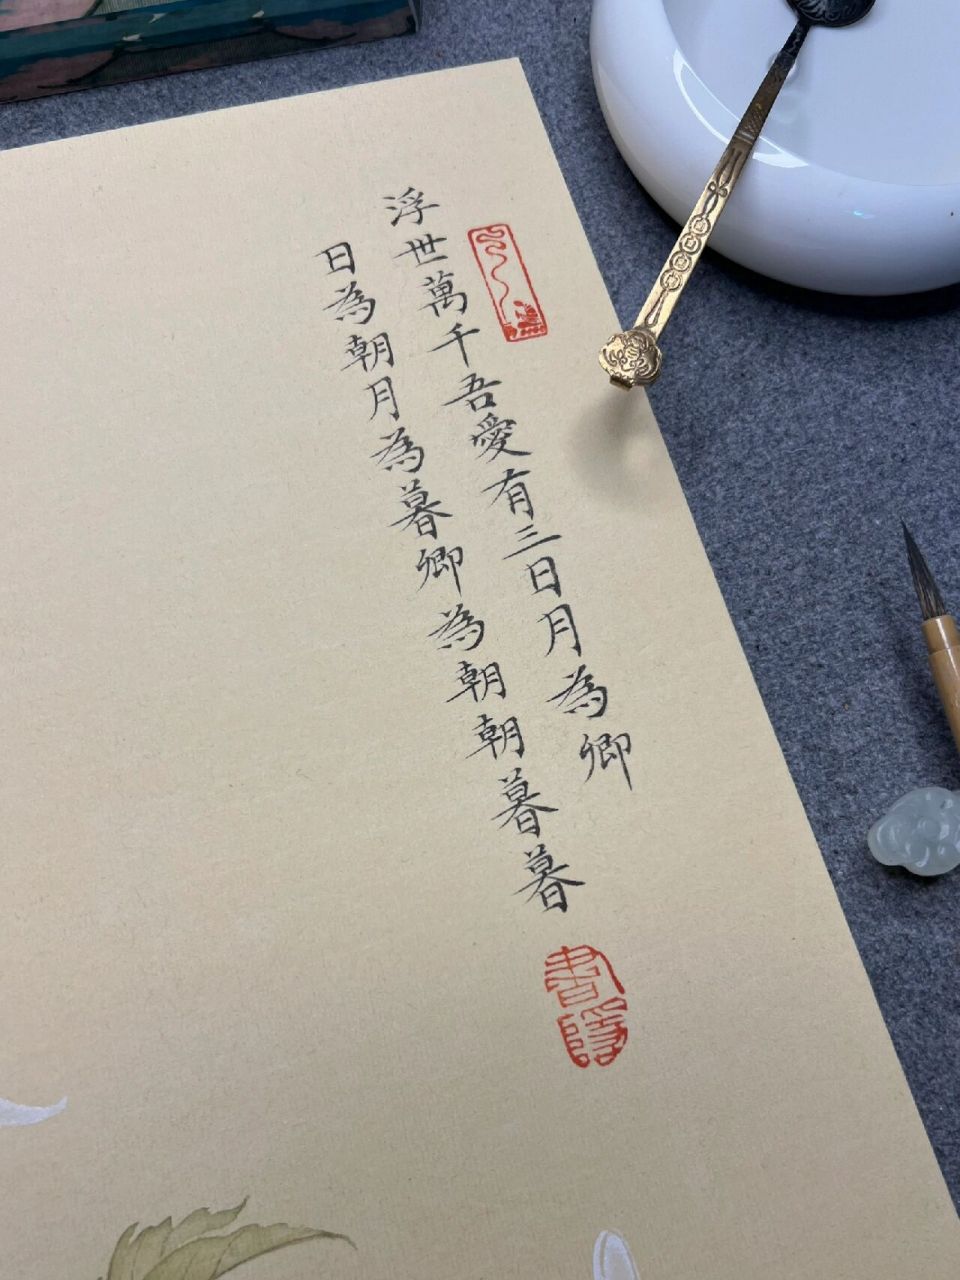 浮世萬千吾愛有三日月為卿
日為朝月為暮卿為朝朝暮暮
書隱